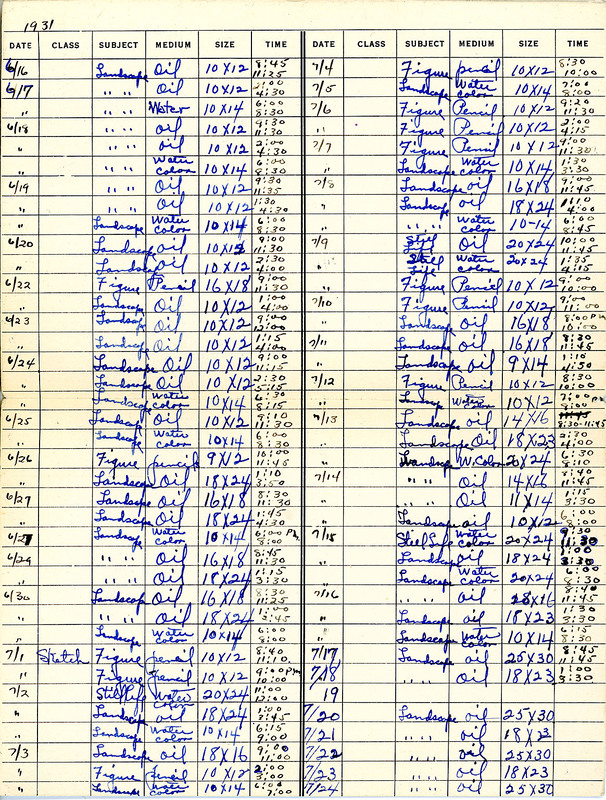 1931
DATE CLASS SUBJECT MEDIUM SIZE TIME
6/16 Landscape Oil 10X12 8:45 11:25
6/17 " " Oil 10X12 2:00 4:30
" " " Water 10X14 6:00 8:30
6/18 " " Oil 10X12 9:30 11:30
" " " Oil 10X12 2:00 4:30
" " Water color 10X14 6:00 8:30
6/19 " " Oil 10X12 9:30 11:35
" " " Oil 10X12 1:30 4:30
" Landscape Water color 10X14 6:00 8:30
6/20 Landscape Oil 10X12 9:00 11:30
" Landscape Oil 10X12 2:30 4:00
6/22 Figure Pencil 16X18 9:00 11:30
" Landscape Oil 10X12 1:00 4:00
6/23 Landscape Oil 10X12 9:00 12:00
" Landscape Oil 10X12 1:15 4:00
6/24 Landscape Oil 10X12 9:00 11:15
" Landscape Oil 10X12 2:30 5:15
" Landscape Water color 10X14 6:30 8:15
6/25 Landscape Oil 10X12 8:10 11:30
" Landscape Water color 10X14 6:00 8:30
6/26 Figure pencil 9X12 10:00 11:45
" Landscape Oil 18X24 1:10 3:50
6/27 Landscape Oil 16X18 8:30 11:30
" Landscape Oil 18X24 1:45 4:30
Landscape Water color 10X14 6:00 PM 8:00
6/29 " " Oil 16X18 8:45 11:30
" " " Oil 18X24 1:15 3:30
6/30 Landscape Oil 16X18 8:30 11:25
" " " Oil 18X24 1:00 3:45
Landscape Water color 10X14 6:00 8:00
7/1 Sketch Figure pencil 10X12 8:40 11:10
" Figure Pencil 10X12 9:00 PM 10:00
7/2 Still Life Water color 20X24 11:00 12:00
" Landscape oil 18X24 1:00 2:45
" Landscape Water color 10X14 6:15 9:00
7/3 Landscape oil 18X16 9:00 11:00
" Figure pencil 10X12 2:00 3:00
" Landscape Water color 10X14 6:00 7:00
DATE CLASS SUBJECT MEDIUM SIZE TIME
7/4 Figure pencil 10X12 8:30 10:00
7/5 Landscape Water color 10X14 7:00 8:00
7/6 Figure Pencil 10X12 9:20 11:30
" Figure Pencil 10X12 2:00 4:15
7/7 Figure Pencil 10X12 9:00 11:30
" Landscape Water color 10X14 1:30 3:30
7/8 Landscape oil 16X18 9:00 11:45
" Landscape oil 18X24 1:10 4:00
" " " Water color 10-14 6:00 8:30
7/9 Still Life Oil 20X24 10:00 11:45
" Still Life Water color 20X24 1:35 4:15
" Figure Pencil 10X12 9:00 10:00
7/10 Figure Pencil 10X12 9:00 11:00
" Landscape oil 16X18 8:00 PM 10:00
7/11 Landscape oil 16X18 8:30 11:45
" Landscape oil 9X14 1:10 4:30
7/12 Figure Pencil 10X12 8:30 10:00
" Landscape Water color 10X12 7:00 PM 8:00
7/13 Landscape oil 14X16 8:30-11:45
" Landscape Oil 18X23 2:30 4:00
" Landscape W.Color 20X24 6:30 8:10
7/14 " " Oil 14X16 8:40 11:45
" " " Oil 11X14 1:15 3:30
" Landscape oil 10X12 6:00 8:00
7/15 Still Life Water color 20X24 9:30 11:30
" Landscape oil 18X24 1:00 3:30
" Landscape Water color 20X24 6:00 8:30
7/16 " " oil 8:40 11:45
" Landscape oil 18X23 1:30 3:30
" Landscape Water color 10X14 6:15 8:30
7/17 Landscape oil 25X30 8:45 11:45
7/18 " " oil 18X23 1:00 3:30
19
7/20 Landscape oil 25X30
7/21 " " oil 18X23
7/22 " " oil 25X30
7/23 " " oil 18X23
7/24 " " oil 25X30